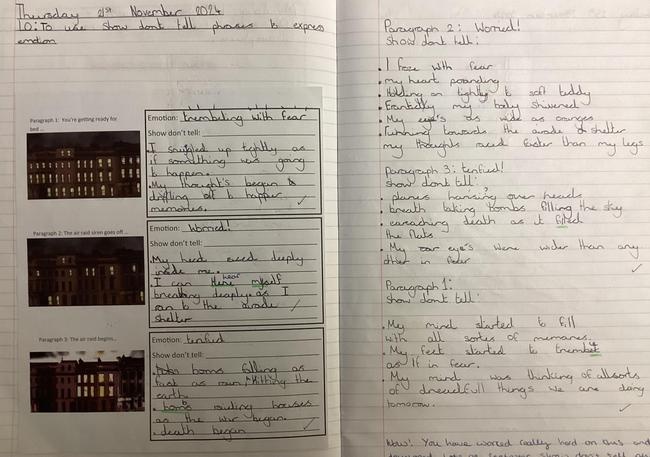 Thursday 21st November 2024
LO: To use show dont tell phrases to express
emotion
Paragraph 1: You're getting ready for
bed ...
Emotion: trembeling with fear
Show don't tell:
I snuggled up tightly as
if something was going
to happen.
My thought's began to
drifting off to happer
memories.
Paragraph 2: The air raid siren goes off ...
Emotion: Worried!
Show don't tell:
My head deeply
inside me.
I can hear myself
breathing deaply as I
ran to the
shelter
Paragraph 3: The air raid begins...
Emotion: terified
Show don't tell:
boms falling as
fast as rain hitting the
earth.
bombs houses
as the war began.
death began
Paragraph 2: Worried!
Show dont tell:
I froze with fear
my heart pounding
Holding on tightly to soft teddy
my body shivered
My eye's as wide as oranges
running towards the shelter
my thoughts raced faster than my legs
Paragraph 3: terified!
show dont tell:
planes over heads
breath taking bombs filling the sky
death as it
the flats
My eye's were wider than any
other in fear
Paragraph 1:
Show dont tell:
My mind started to fill
with all sortes of memaries.
My feet started to
as if in fear.
My mind was thinking of allsorts
of dreadfull things we are doing
tomorow.
Wow! You have worked really hard on this and